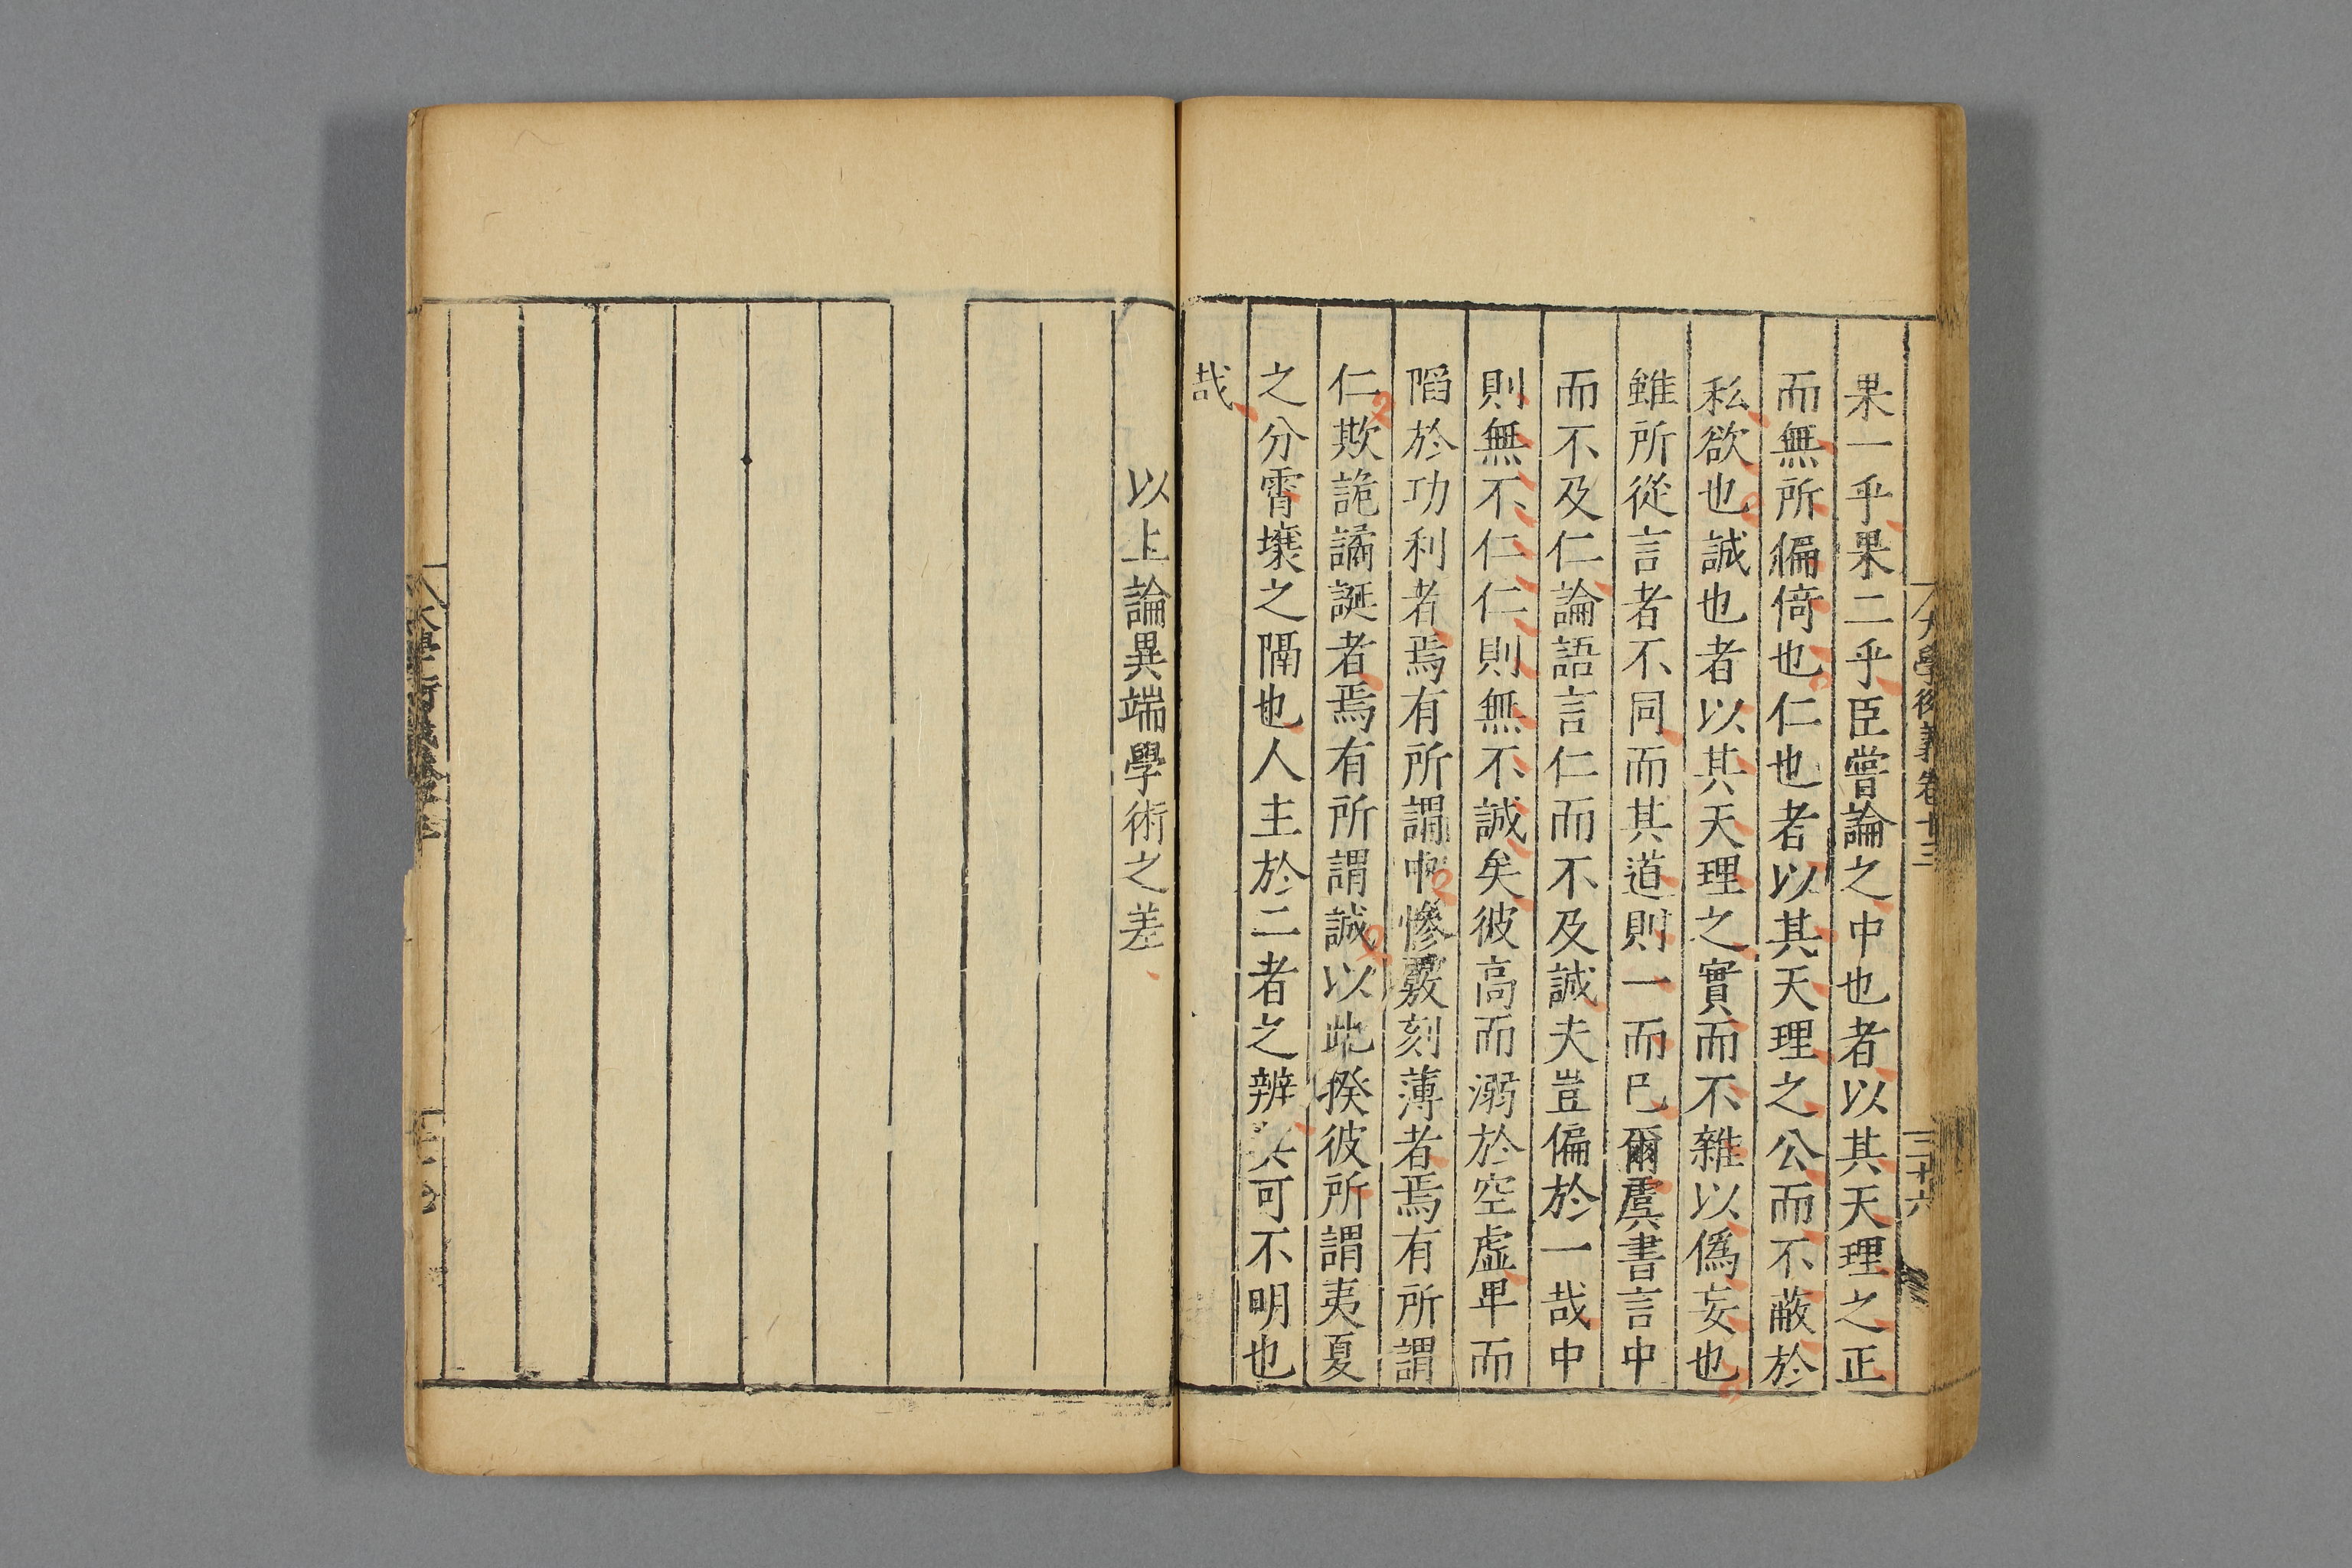 大學衍義卷十三
三十六
果一乎果二乎臣嘗論之中也者以其天理之正
而無所偏倚也仁也者以其天理之公而不蔽於
私欲也誠也者以其天理之實而不雜以僞妄也
雖所從言者不同而其道則一而已爾虞書言中
而不及仁論語言仁而不及誠夫豈偏於一哉中
則無不仁仁則無不誠矣彼高而溺於空虛卑而
陷於功利者焉有所謂中慘覈刻薄者焉有所謂
仁欺詭譎誕者焉有所謂誠以此揆彼所謂夷夏
之分霄壤之隔也人主於二者之辨其可不明也
哉
以上論異端學術之差
大學衍義卷